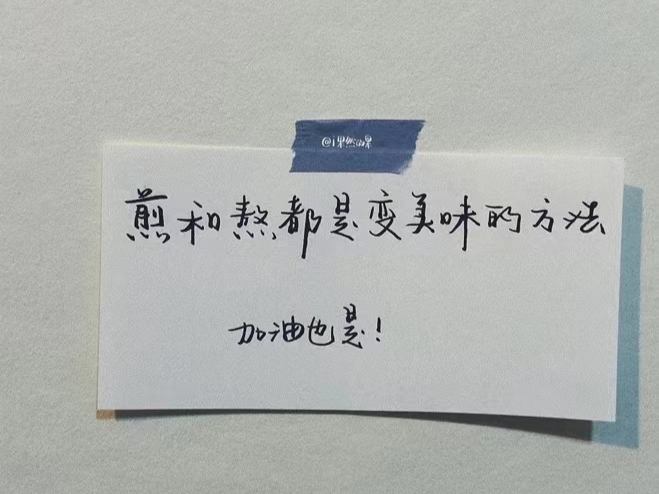 煎和熬都是变美味的方法
加油也是！